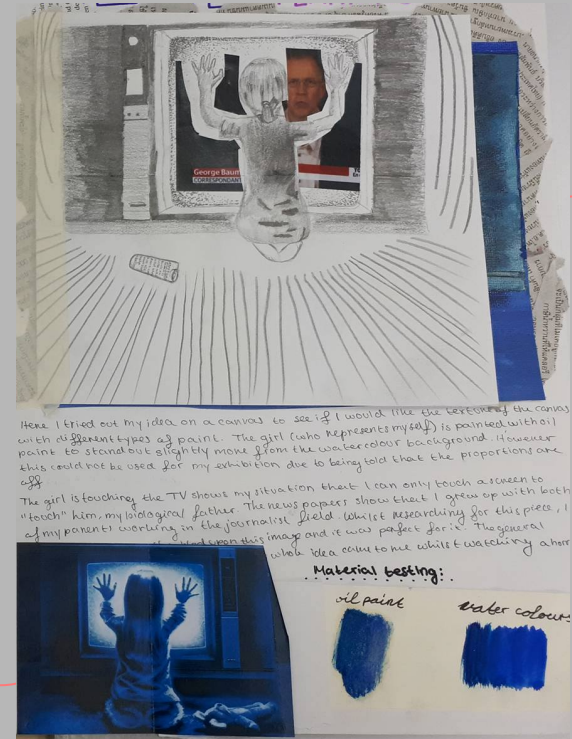 George Baum
CORRESPONDAN
Here I tried out my idea on a canvas to see if I would like the texture of the canvas
with different types of paint. The girl (who represents myself) is painted with oil
paint to stand out slightly more from the watercolour background. However
this could not be used for my exhibition due to being told that the proportions are
off
The girl is touching the TV shows my situation that I can only touch a screen to
"touch" him, my biological father. The news papers show that I grew up with both
of my parents working in the journalist field. Whilst researching for this piece, I
upon this image and it was perfect for it. The general
whole idea came to me whilst watching a horr
Material testing:
oil paint
water colours